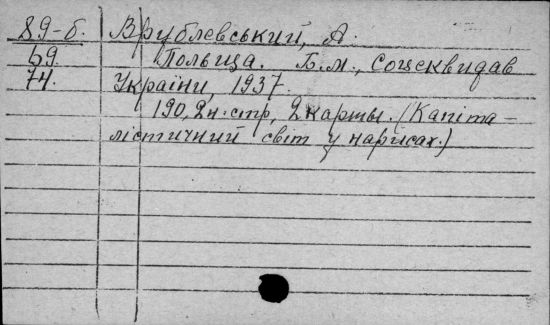 89-б. Врублевський, А.
59. Польща. Б.м., Соцеквидав
74. України, 1937.
190, 2н.стр, 2 карты. (Капіта-
лістичний світ у нарисах.)